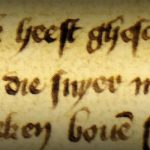 heeft ghesc
die suyer m
ken bouē s